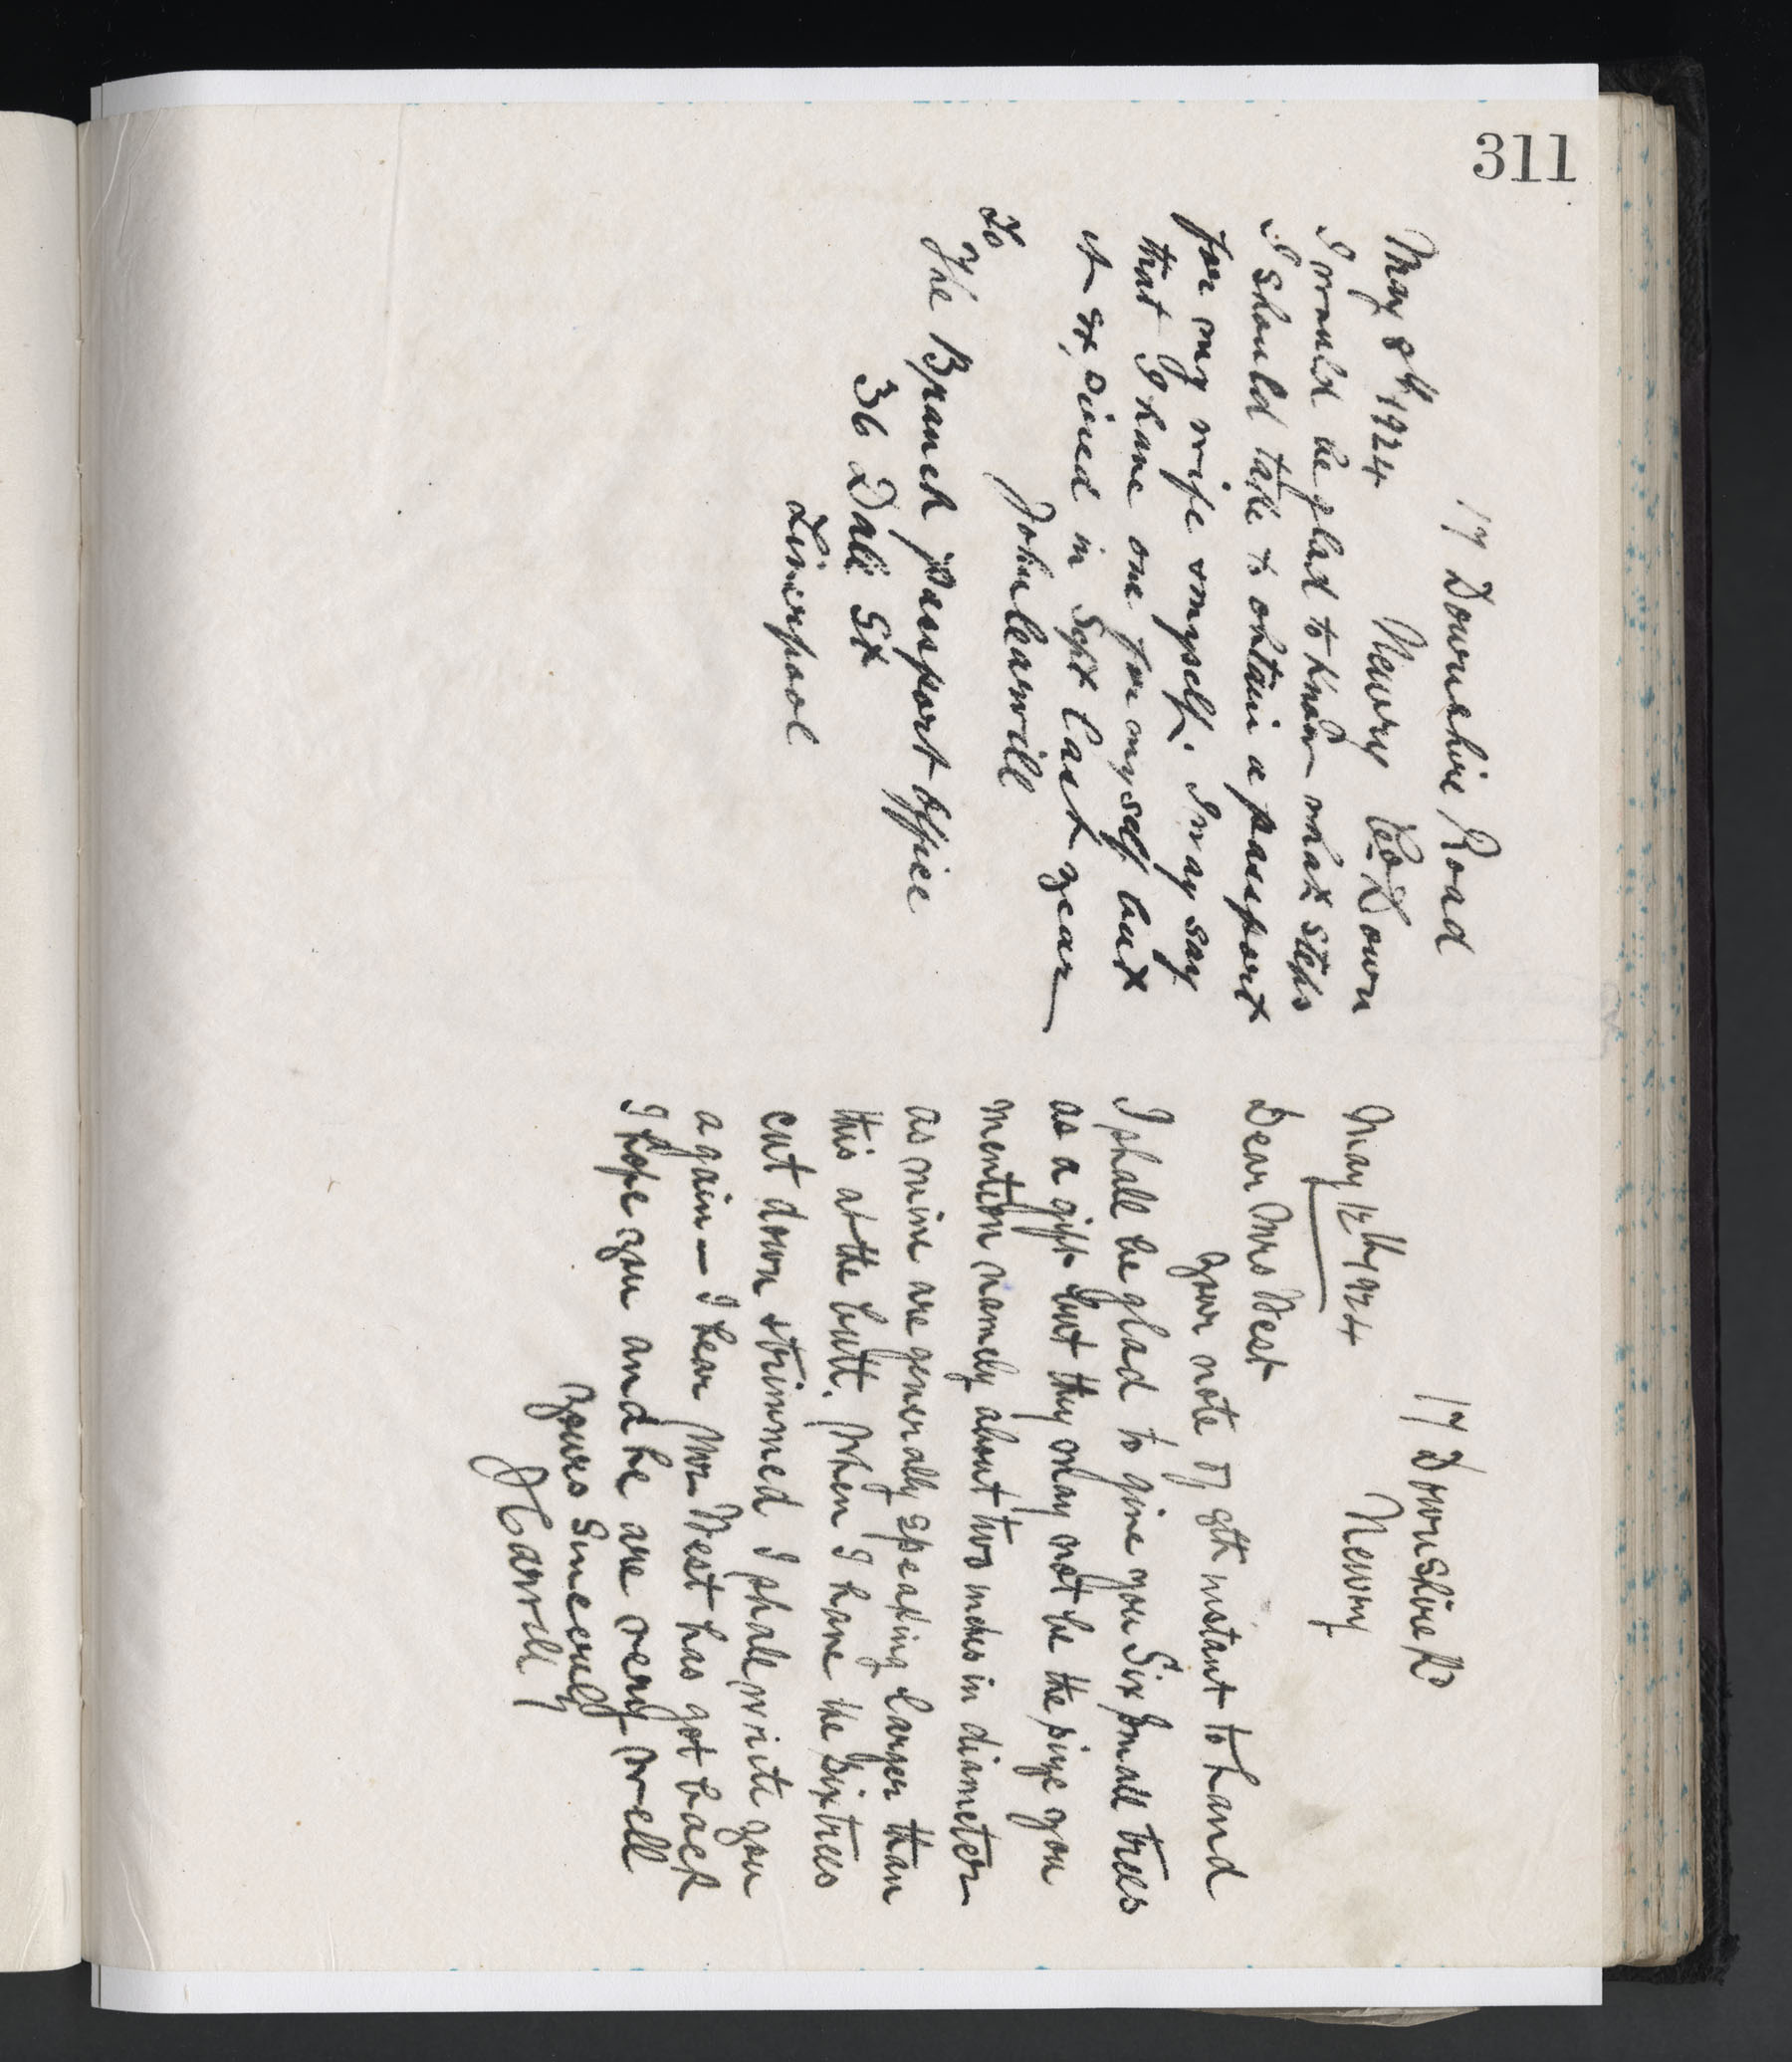 311
17 Downshire Road
May 8th 1924 Newry Co Down
I would be glad to know what steps
I should take to obtain a passport
for my wife & myself. I may say
that I have one for myself but
it expired in Sept last year
John
To
The Branch Passport Office
36 Dale St
Liverpool
17 Downshire Rd
May 12th 1924 Newry
Dear Mrs West
your note of 9th instant to hand
I shall be glad to give you Six small trees
as a gift but they may not be the size you
mention namely about two inches in diameter
as mine are generally speaking larger than
this at the butt. When I have the Six trees
cut down & trimmed I shall write you
again — I hear Mr West has got back
I hope you and he are very well
yours sincerely